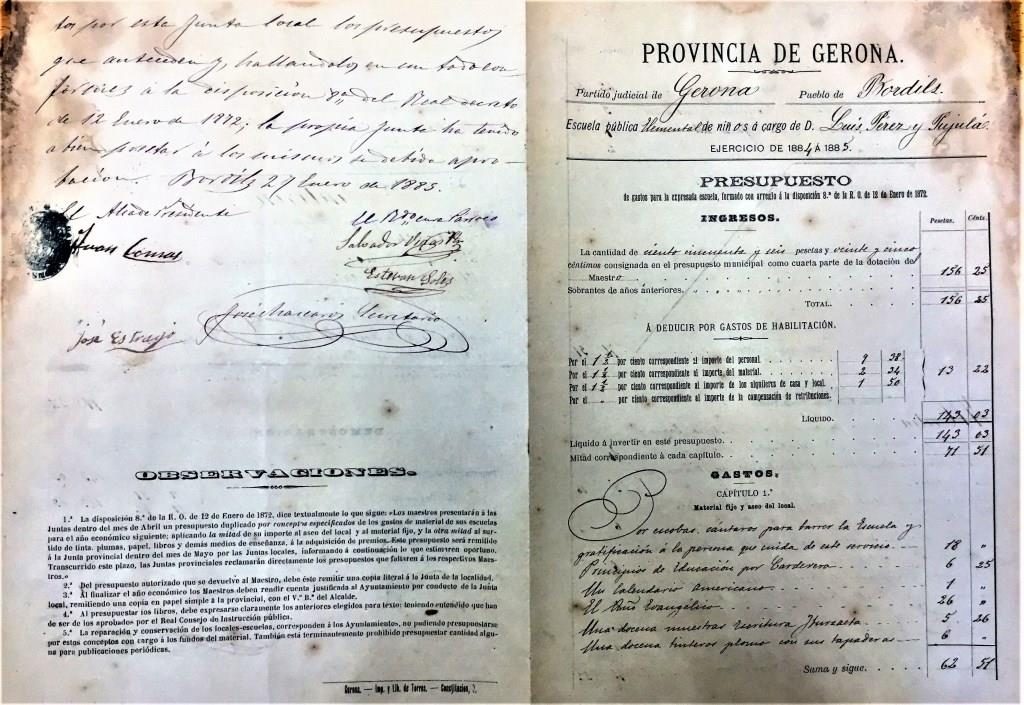 tos por esta Junta local los presupuestos
que anteceden y, hallándolos en un todo con
formes á la disposicion 8ª del Real decreto
de 12 Enero de 1872; la propia Junta ha tenido
a bien prestar á los mismos su debida apro-
bacion. Bordils 27 Enero de 1885.
El Alcalde Presidente
El Rdo. cura Párroco
Juan Comas
Salvador
Esteban Solés
José Secretario
José
OBSERVACIONES.
1.ª La disposición 8.ª de la R. O. de 12 de Enero de 1872, dice textualmente lo que sigue: «Los maestros presentarán á las
Juntas dentro del mes de Abril un presupuesto duplicado por conceptos especificados de los gastos de material de sus escuelas
para el año económico siguiente; aplicando la mitad de su importe al aseo del local y al material fijo, y la otra mitad al sur-
tido de tinta, plumas, papel, libros y demás medios de enseñanza, á la adquisición de premios. Este presupuesto será remitido
á la Junta provincial dentro del mes de Mayo por las Juntas locales, informando á continuación lo que estimaren oportuno.
Transcurrido este plazo, las Juntas provinciales reclamarán directamente los presupuestos que faltaren á los respectivos Maes-
tros.»
2.ª Del presupuesto autorizado que se devuelve al Maestro, debe éste remitir una copia literal á la Junta de la localidad.
3.ª Al finalizar el año económico los Maestros deben rendir cuenta justificada al Ayuntamiento por conducto de la Junta
local, remitiendo una copia en papel simple á la provincial, con el V.º B.º del Alcalde.
4.ª Al presupuestar los libros, debe expresarse claramente los anteriores elegidos para texto; teniendo entendido que han
de ser de los aprobados por el Real Consejo de Instrucción pública.
5.ª La reparación y conservación de los locales-escuelas, corresponden á los Ayuntamientos, no pudiendo presupuestarse
por estos conceptos con cargo á los fundos del material. También está terminantemente prohibido presupuestar cantidad algu-
na para publicaciones periódicas.
Gerona. — Imp. y Lib. de Torres. — Constitucion, 2.
PROVINCIA DE GERONA.
Partido judicial de Gerona Pueblo de Bordils.
Escuela pública Elemental de niños á cargo de D. Luis Pérez y Pujulá.
EJERCICIO DE 1884 Á 1885.
PRESUPUESTO
de gastos para la expresada escuela, formado con arreglo á la disposición 8.ª de la R. O. de 12 de Enero de 1872.
INGRESOS.
Pesetas. Cénts.
La cantidad de ciento cincuenta y seis pesetas y veinte y cinco
céntimos consignada en el presupuesto municipal como cuarta parte de la dotación del
Maestro 156 25
Sobrantes de años anteriores.
TOTAL. 156 25
Á DEDUCIR POR GASTOS DE HABILITACIÓN.
Por el 1 ½ por ciento correspondiente al importe del personal. 9 38
Por el 1 ½ por ciento correspondiente al importe del material. 2 34 13 22
Por el 1 ½ por ciento correspondiente al importe de los alquileres de casa y local. 1 50
Por el „ por ciento correspondiente al importe de la compensación de retribuciones.
LÍQUIDO. 143 03
Líquido á invertir en este presupuesto. 143 03
Mitad correspondiente á cada capítulo. 71 51
GASTOS.
CAPÍTULO 1.º
Material fijo y aseo del local.
Por escobas, cántaros para barrer la Escuela y
gratificación á la persona que cuida de este servicio 18 „
Principios de Educación por Carderera 6 25
Un Calendario americano 1 „
El Año Evangélico 26 „
Una docena muestras escritura Iturzaeta 5 26
Una docena tinteros plomo con sus tapaderas 6 „
Suma y sigue. 62 51